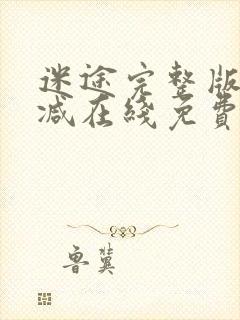 迷途完整版
减在线免費
鲁冀